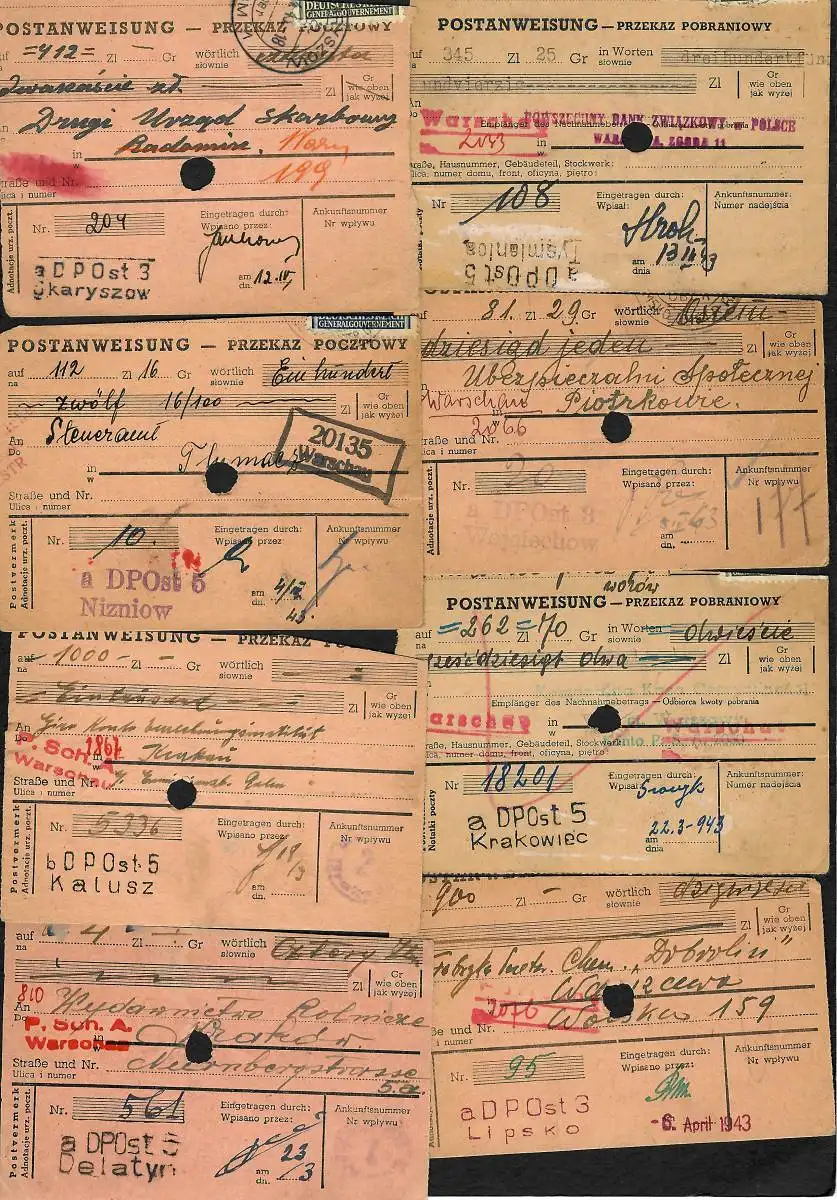 DEUTSCHES REICH
GENERALGOUVERNEMENT
POSTANWEISUNG – PRZEKAZ POCZTOWY
=412= Zl – Gr wörtlich
słownie
dwanaście zł. Zl Gr
wie oben
jak wyżej
Drugi Urząd Skarbowy
Radomiu,
199
Straße und Nr.
Ulica i numer
Adnotacje urz. poczt.
Nr. 204
Eingetragen durch:
Wpisano przez:
Ankunftsnummer
Nr wpływu
am
dn. 12.IV.
a DPOst 3
Skaryszow
DEUTSCHES REICH
GENERALGOUVERNEMENT
POSTANWEISUNG – PRZEKAZ POCZTOWY
auf
na 112 Zl 16 Gr wörtlich
słownie Ein hundert
zwölf 16/100 Zl Gr
wie oben
jak wyżej
An
Do Steueramt
in
w Tłumacz
20135
Warschau
Straße und Nr.
Ulica i numer
Postvermerk
Adnotacje urz. poczt.
Nr. 10.
Eingetragen durch:
Wpisano przez:
Ankunftsnummer
Nr wpływu
am
dn.
a DPOst 5
Nizniow
POSTANWEISUNG – PRZEKAZ
auf
na –1000– Zl – Gr wörtlich
słownie
Eintausend Zl Gr
wie oben
jak wyżej
An
Giro Konto
P. Sch. A.
Warschau
in
w Krakau
Straße und Nr.
Ulica i numer
Postvermerk
Adnotacje urz. poczt.
Nr. 5336
Eingetragen durch:
Wpisano przez:
Ankunftsnummer
Nr wpływu
am
dn.
b DPOst 5
Kalusz
auf
na 4 Zl Gr wörtlich
słownie Cztery
Zl Gr
wie oben
jak wyżej
810
An
Wydawnictwo Rolnicze
P. Sch. A.
Warschau
Kraków
Straße und Nr.
Ulica i numer
Nürnbergstrasse
5.a.
Postvermerk
Adnotacje urz. poczt.
Nr. 561
Eingetragen durch:
Wpisano przez:
Ankunftsnummer
Nr wpływu
am
dn. 23/3
a DPOst 5
Delatyn
POSTANWEISUNG – PRZEKAZ POBRANIOWY
auf 345 Zl 25 Gr in Worten
słownie dreihundertfün
undvierzig Zl Gr
wie oben
jak wyżej
Warschau
2043
Empfänger des Nachnahmebetrags
POWSZECHNY BANK ZWIĄZKOWY w POLSCE
WARSZAWA, ZGODA 11
in
w
Straße, Hausnummer, Gebäudeteil, Stockwerk:
ulica, numer domu, front, oficyna, piętro:
Notatki poczty
Nr 108
Eingetragen durch:
Wpisał:
Ankunftsnummer:
Numer nadejścia
am
dnia
a DPOst 5
Tysmienica
81. Zl 29. Gr wörtlich
słownie Osiem-
dziesiąd jeden Zl Gr
wie oben
jak wyżej
Ubezpieczalni Społecznej
Warschau
in
w Piotrkowie.
2066
Straße und Nr.
Ulica i numer
Adnotacje urz. poczt.
Nr. 20
Eingetragen durch:
Wpisano przez:
Ankunftsnummer
Nr wpływu
177
am
dn.
a DPOst 3
Wojciechow
worów
POSTANWEISUNG – PRZEKAZ POBRANIOWY
auf
na =262= Zl 70 Gr in Worten
słownie dwieście
sześćdziesiąt dwa Zl Gr
wie oben
jak wyżej
Empfänger des Nachnahmebetrags – Odbiorca kwoty pobrania
Warschau
in
w
Warschau
Straße, Hausnummer, Gebäudeteil, Stockwerk
ulica, numer domu, front, oficyna, piętro:
Notatki poczty
Nr 18201
Eingetragen durch:
Wpisał:
Ankunftsnummer:
Numer nadejścia
am
dnia 22.3-943
a DPOst 5
Krakowiec
900 Zl – Gr wörtlich
słownie dziewięćset
Zl Gr
wie oben
jak wyżej
Fabryka Przetw. Chem. „Dobrolin"
Warszawa
2076
Wolska 159
Straße und Nr.
Ulica i numer
Adnotacje urz. poczt.
Nr. 95
Eingetragen durch:
Wpisano przez:
Ankunftsnummer
Nr wpływu
-6. April 1943
a DPOst 3
Lipsko